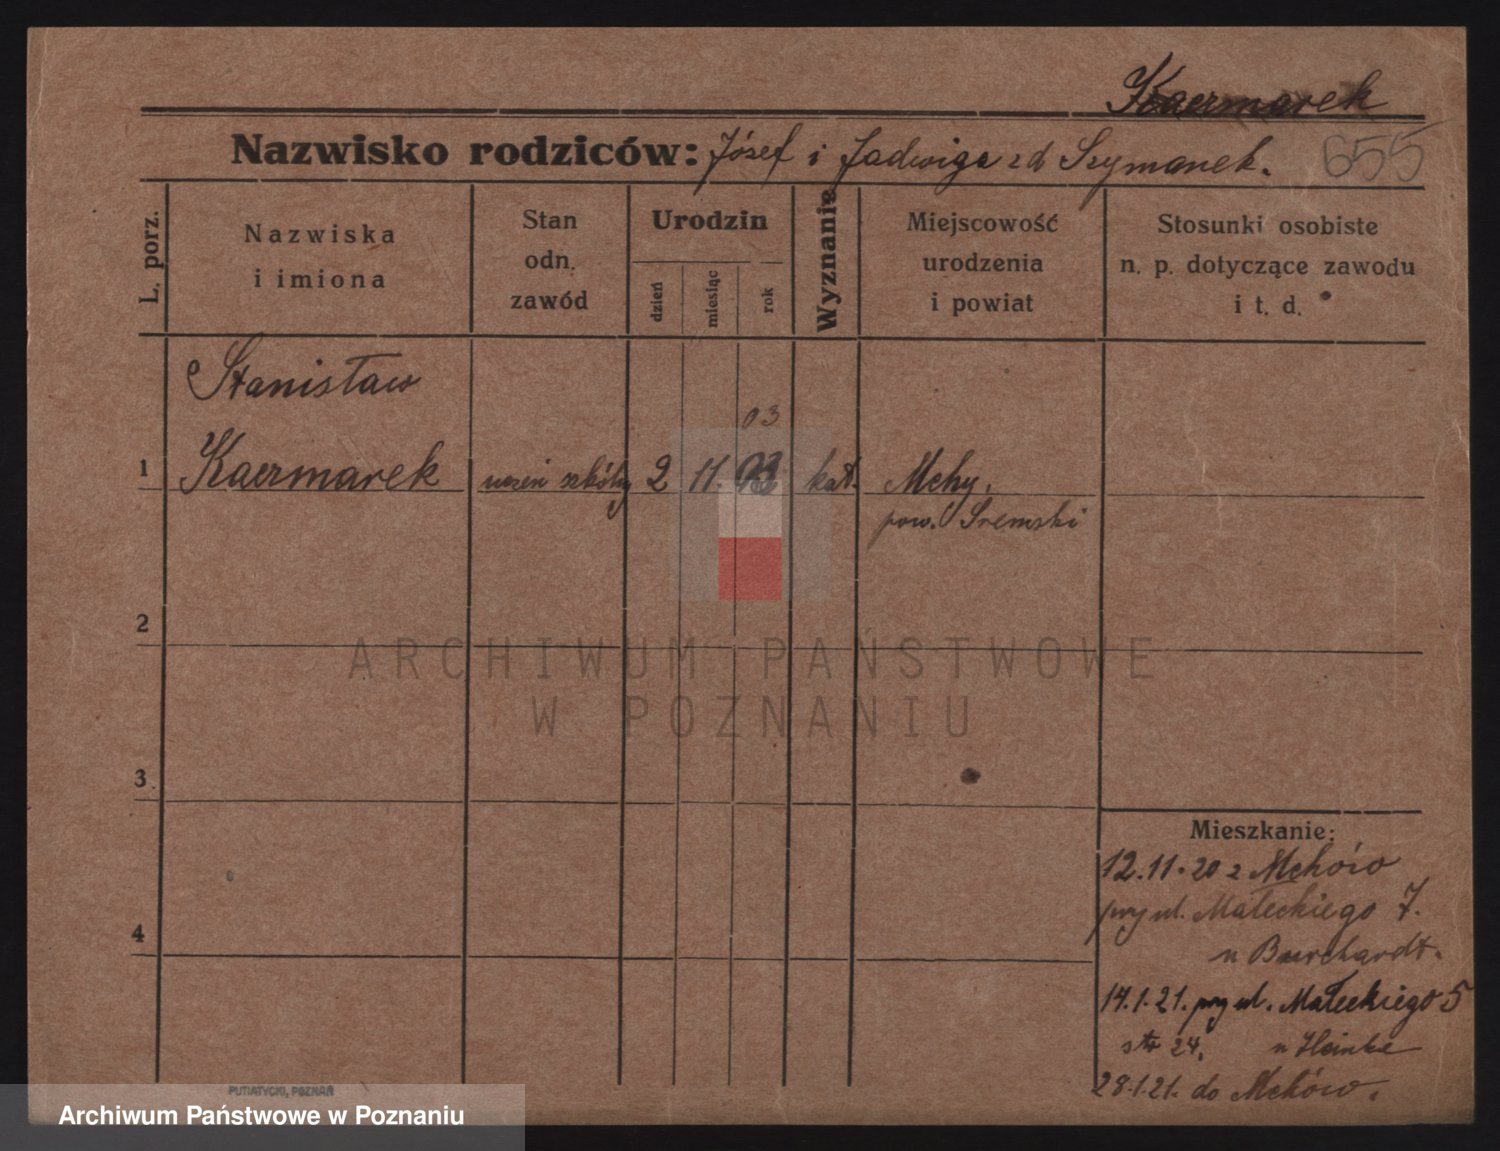 Kaczmarek
Nazwisko rodziców: Józef i Jadwiga zd Szymanek.
655
L. porz.
Nazwiska
i imiona
Stan
odn.
zawód
Urodzin
dzień
miesiąc
rok
Wyznanie
Miejscowość
urodzenia
i powiat
Stosunki osobiste
n. p. dotyczące zawodu
i t. d.
Stanisław
03
1 Kaczmarek uczeń szkólny 2 11. kat. Mchy,
pow. Śremski
2
3
4
Mieszkanie:
12.11.20 z Mchów
przy ul. Małeckiego 7.
u Burchardt.
14.1.21. przy ul. Małeckiego 5
str 24. u Heinke
28.1.21. do Mchów.
ARCHIWUM PAŃSTWOWE
W POZNANIU
PUTIATYCKI, POZNAŃ
Archiwum Państwowe w Poznaniu